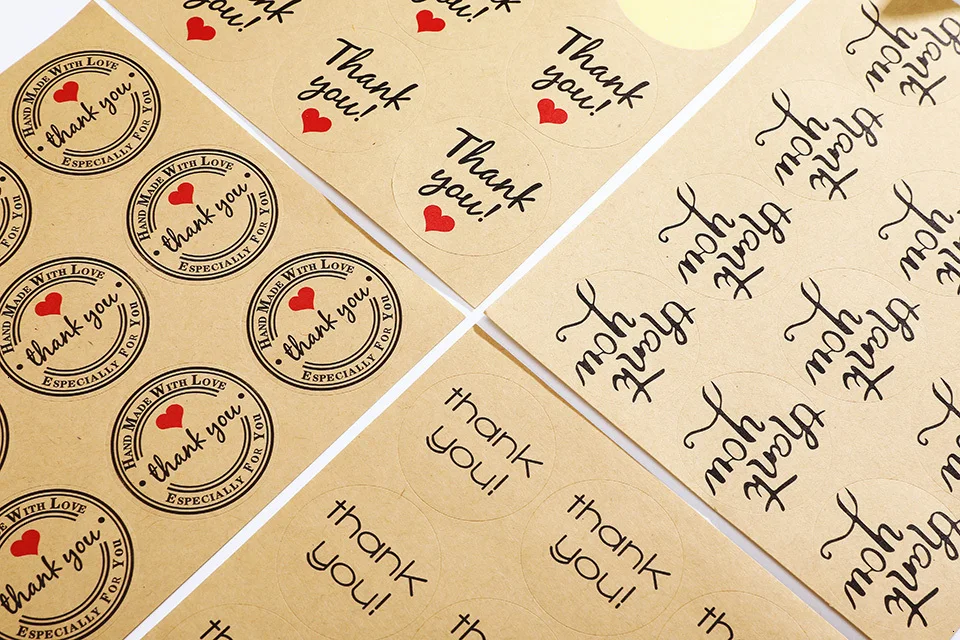 you!
you!
Thank
you!
Thank
you!
Thank
you!
HAND MADE WITH LOVE
thank you
ESPECIALLY FOR YOU
HAND MADE WITH LOVE
thank you
ESPECIALLY FOR YOU
FOR YOU
HAND MADE WITH LOVE
thank you
ESPECIALLY FOR YOU
HAND MADE WITH LOVE
thank you
ESPECIALLY FOR YOU
HAND MADE WITH LOVE
thank you
ESPECIALLY FOR YOU
MADE WITH LOVE
thank you
ESPECIALLY FOR YOU
thank
you!
thank
you!
thank
you!
thank
you
thank
you
thank
you
thank
you
thank
you
thank
you
thank
you
thank
you